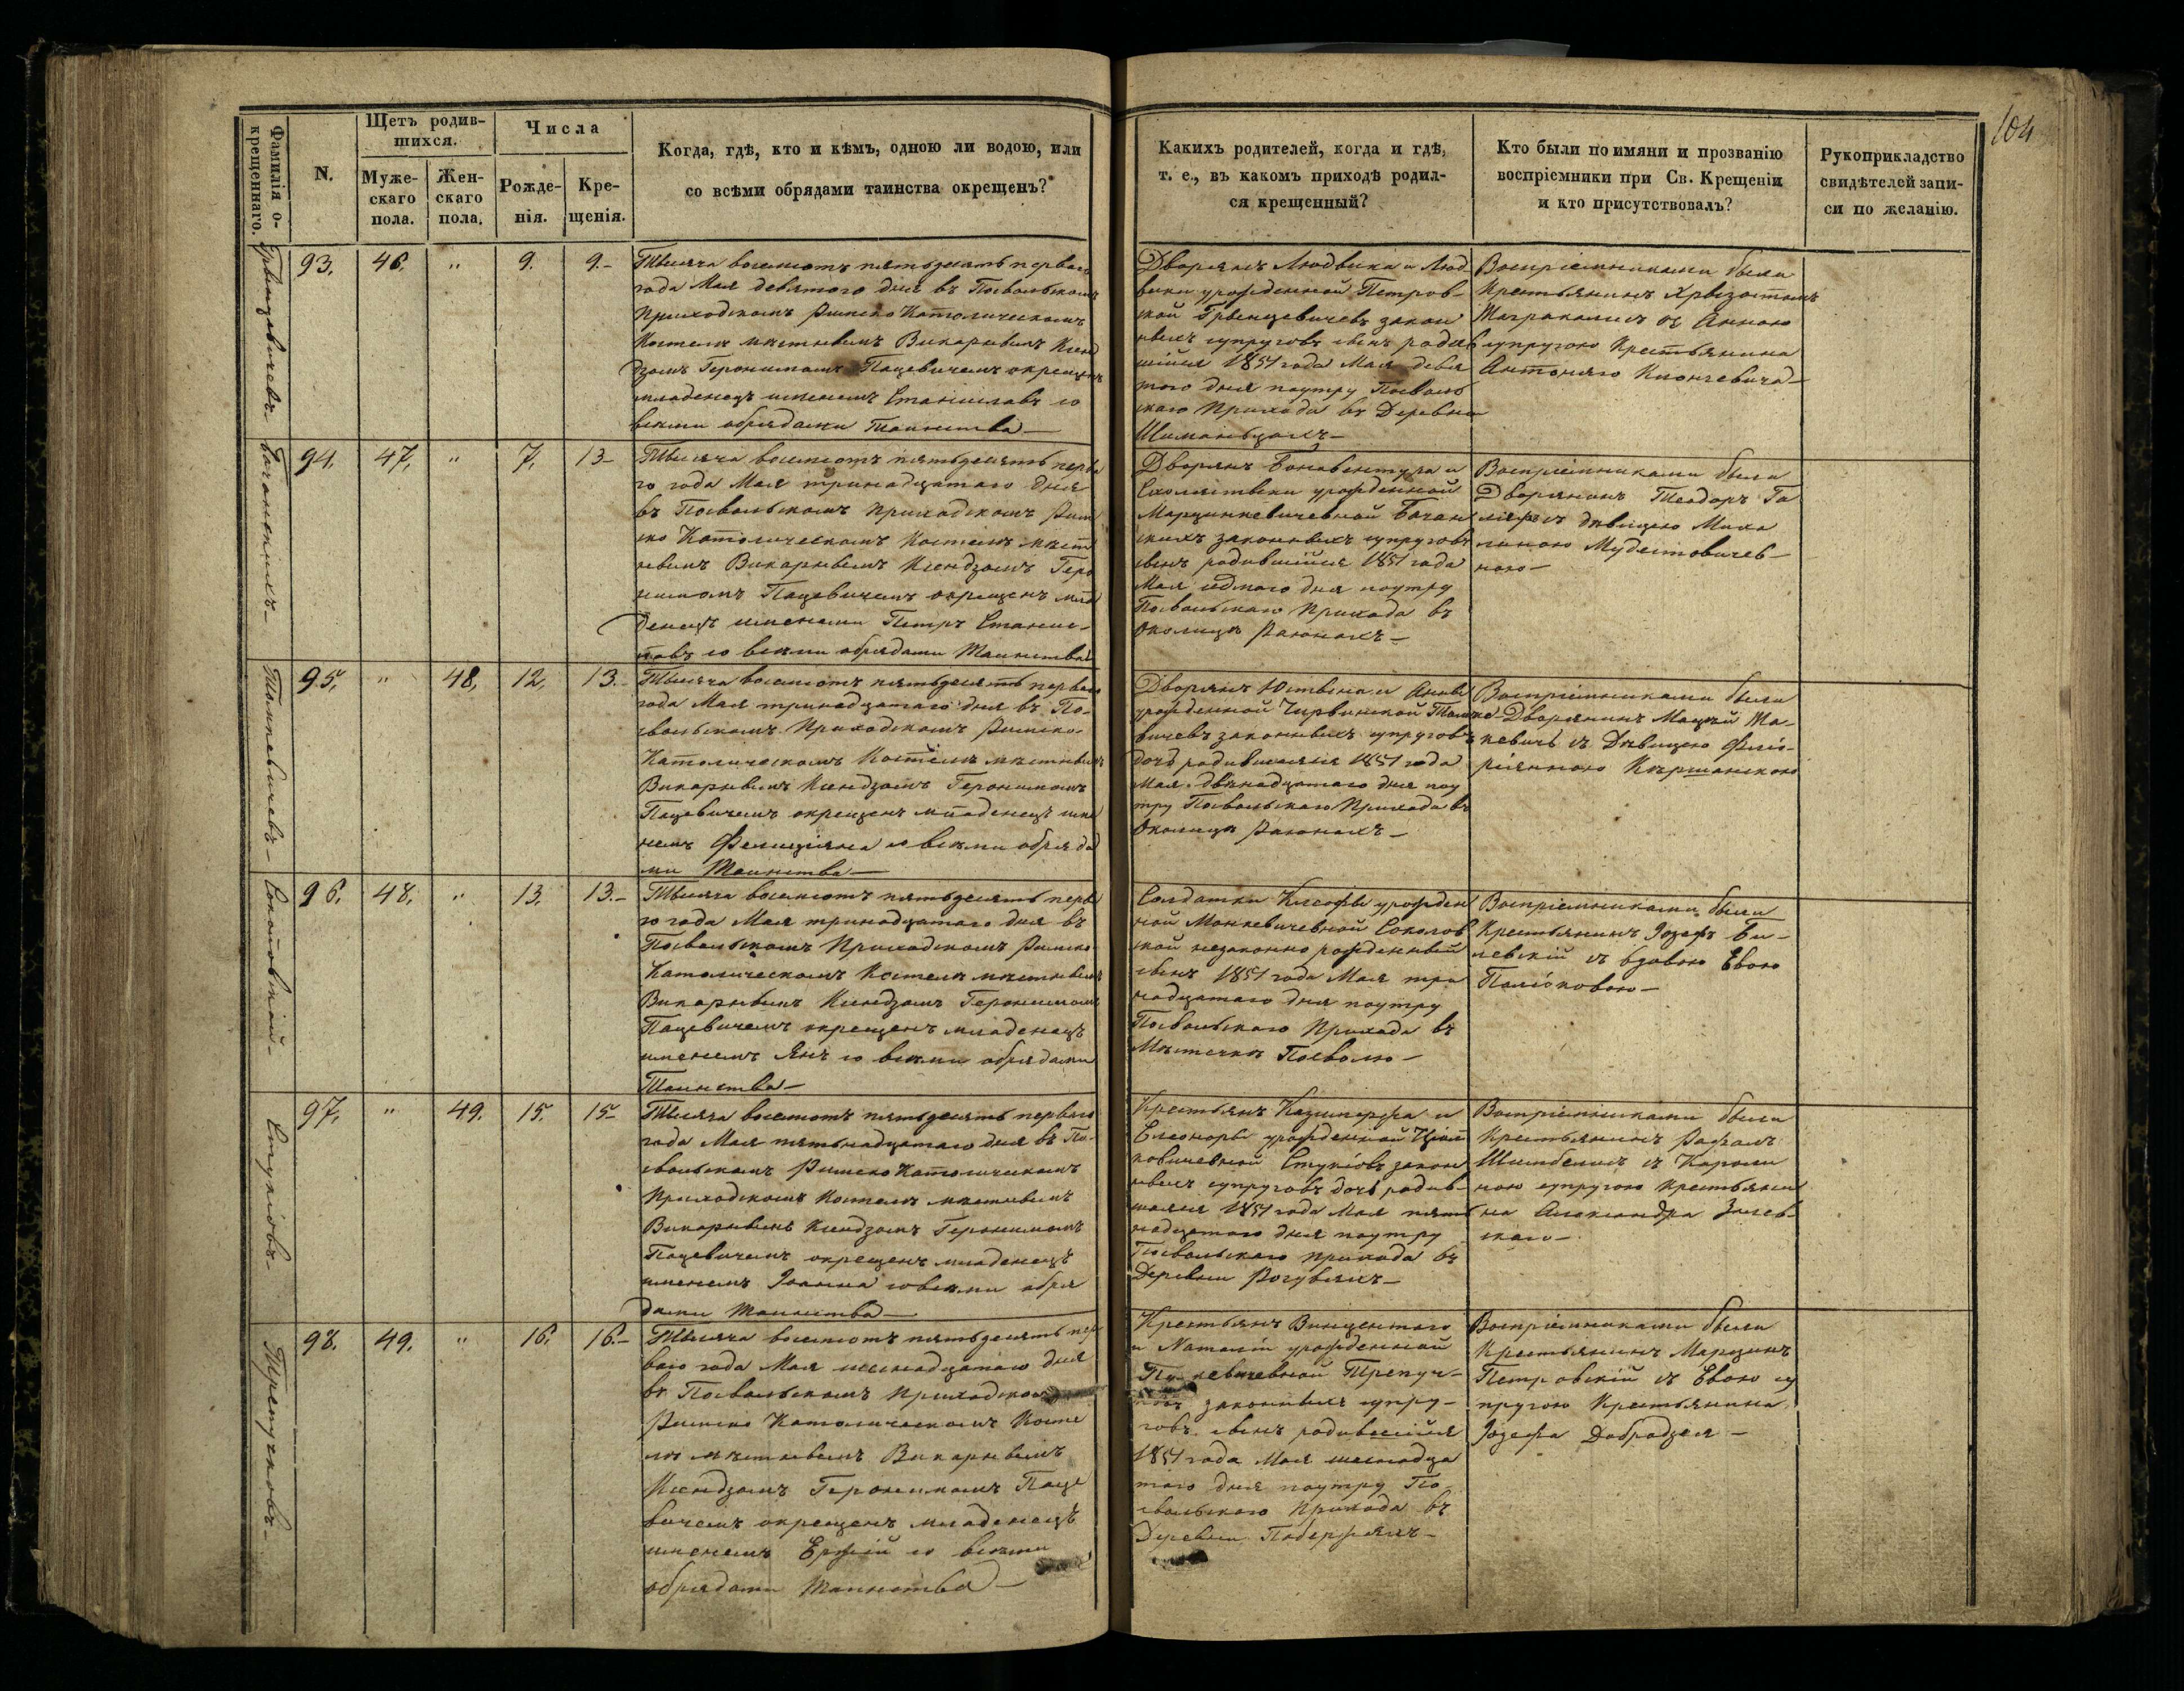 104
Фамилія о-
крещеннаго.
N.
Щетъ родив-
шихся.
Муже-
скаго
пола.
Жен-
скаго
пола.
Числа
Рожде-
нія.
Кре-
щенія.
Когда, гдѣ, кто и кѣмъ, одною ли водою, или
со всѣми обрядами таинства окрещенъ?
Какихъ родителей, когда и гдѣ,
т. е., въ какомъ приходѣ родил-
ся крещенный?
Кто были по имяни и прозванію
воспріемники при Св. Крещеніи
и кто присутствовалъ?
Рукоприкладство
свидѣтелей запи-
си по желанію.
93. 46. " 9. 9.-
Тысяча восемсотъ пятьдесятъ перваго
года Мая девятого дня въ Посвольскомъ
Приходскомъ Римско Католическомъ
Костелѣ мѣстнымъ Викарнымъ Ксен
дзомъ Геронимомъ Пацевичемъ окрещенъ
младенецъ именемъ Станиславъ со
всѣми обрядами Таинства—
Дворянъ Людвика и Люд
вики урожденной Петров-
ской Грынцевичевъ закон
ныхъ супруговъ сынъ родив
шійся 1851 года Мая девя
того дня поутру Посволь
скаго Прихода въ Деревни
Воспріемниками были
Крестьянинъ Хрызостомъ
съ Анною
супругою Крестьянина
Антоняго
94. 47. " 7. 13-
Тысяча восемсотъ пятьдесятъ перва
го года Мая тринадцатаго дня
въ Посвольскомъ Приходскомъ Рим
ско Католическомъ Костелѣ мѣст
нымъ Викарнымъ Ксендзомъ Геро
нимомъ Пацевичемъ окрещенъ мла
денецъ именами Петръ Станис-
лавъ со всѣми обрядами Таинства
Дворянъ Бонавентура и
Схолястики урожденной
Марцинкевичевной Бачан
скихъ законныхъ супруговъ
сынъ родившійся 1851 года
Мая седмаго дня поутру
Посвольскаго Прихода въ
Околицѣ Раюнахъ—
Воспріемниками были
Дворянинъ Теодоръ Га
съ дѣвицею Миха
линою Мудестовичев-
ною—
Томкевичевъ-
95. " 48. 12. 13.-
Тысяча восемсотъ пятьдесятъ перваго
года Мая тринадцатаго дня въ По-
свольскомъ Приходскомъ Римско-
Католическомъ Костелѣ мѣстнымъ
Викарнымъ Ксендзомъ Геронимомъ
Пацевичемъ окрещенъ младенецъ име
немъ Фелиціяна со всѣми обряда
ми Таинства—
Дворянъ Юстина и Анны
урожденной Чирвинской Томке
вичевъ законныхъ супруговъ
дочь родившаяся 1851 года
Мая двѣнадцатаго дня поу
тру Посвольскаго Прихода въ
Околицѣ Раюнахъ—
Воспріемниками были
Дворянинъ Мацѣй
кевичъ съ Дѣвицею Флё-
ріянною Киршанскою
96. 48. " 13. 13.-
Тысяча восемсотъ пятьдесятъ перва
го года Мая тринадцатаго дня въ
Посвольскомъ Приходскомъ Римско
Католическомъ Костелѣ мѣстнымъ
Викарнымъ Ксендзомъ Геронимомъ
Пацевичемъ окрещенъ младенецъ
именемъ Янъ со всѣми обрядами
Таинства—
Солдатки Клеофы урожден
ной Монкевичевной Соколов
ской незаконно рожденный
сынъ 1851 года Мая три
надцатаго дня поутру
Посвольскаго Прихода въ
Мѣстечкѣ Посволю—
Воспріемниками были
Крестьянинъ Іозефъ Би-
левскій съ вдовою Евою
Стукісовъ-
97. " 49. 15. 15-
Тысяча восемсотъ пятьдесятъ перваго
года Мая пятьнадцатаго дня въ По-
свольскомъ Римско Католическомъ
Приходскомъ Костелѣ мѣстнымъ
Викарнымъ Ксендзомъ Геронимомъ
Пацевичемъ окрещенъ младенецъ
именемъ Іоанна со всѣми обря
дами Таинства—
Крестьянъ Казимержа и
Елеоноры урожденной
ковичевной закон
ныхъ супруговъ дочь родив-
шаяся 1851 года Мая пять
надцатаго дня поутру
Посвольскаго прихода въ
Деревни
Воспріемниками были
Крестьянинъ Рафалъ
съ Кароли
ною супругою Крестьяни
на Александра
скаго—
98. 49. " 16. 16.-
Тысяча восемсотъ пятьдесятъ пер
ваго года Мая шеснадцатаго дня
въ Посвольскомъ Приходскомъ
Римско Католическомъ Косте
лѣ мѣстнымъ Викарнымъ
Ксендзомъ Геронимомъ Паце
вичемъ окрещенъ младенецъ
именемъ Ержій со всѣми
обрядами Таинства—
Крестьянъ Винцентаго
и Наталіи урожденной
законныхъ супру-
говъ сынъ родившійся
1851 года Мая шеснадца
таго дня поутру По
свольскаго Прихода въ
Деревни
Воспріемниками были
Крестьянинъ Марцинъ
Петровскій съ Евою су
пругою Крестьянина
Іозефа Добродзея—